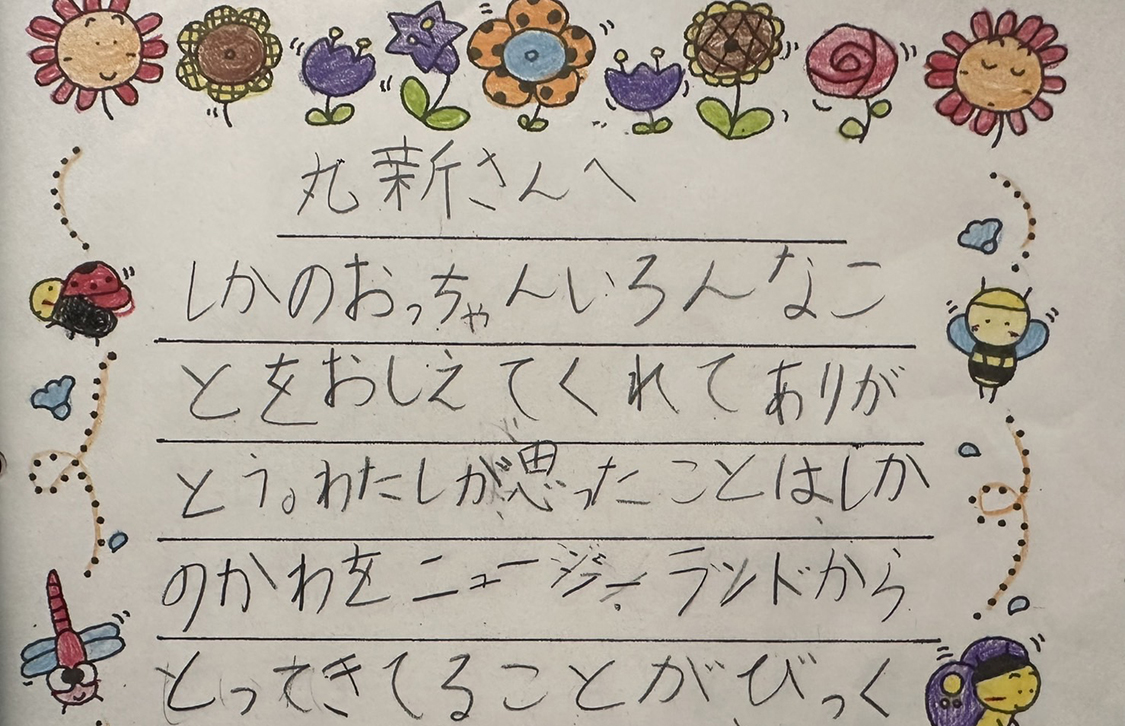 丸新さんへ
しかのおっちゃんいろんなこ
とをおしえてくれてありが
とう。わたしが思ったことはしか
のかわをニュージーランドから
とってきてることがびっく